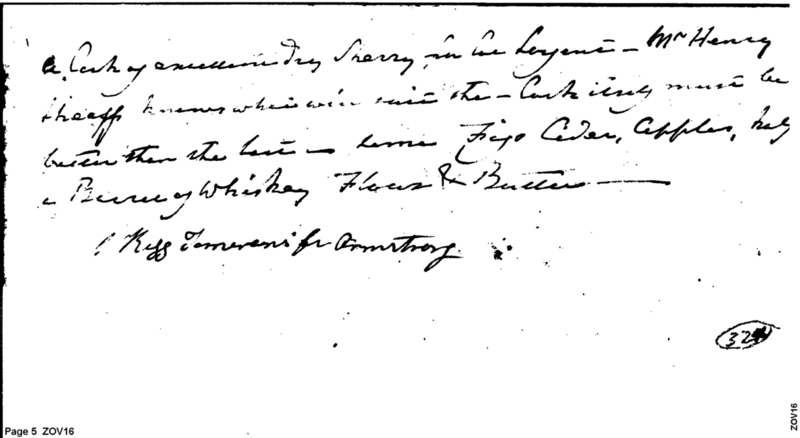 a Cask of excellent Dry Sherry, for the - Mr Henry
Sheaff knows what will suit the - Cask itself must be
better than the last - some Figs Ceder, Apples, half
a Barrel of Whiskey Flour & Butter
1 Kegg Tamerans for Armstrong
324
Page 5 ZOV16
ZOV16